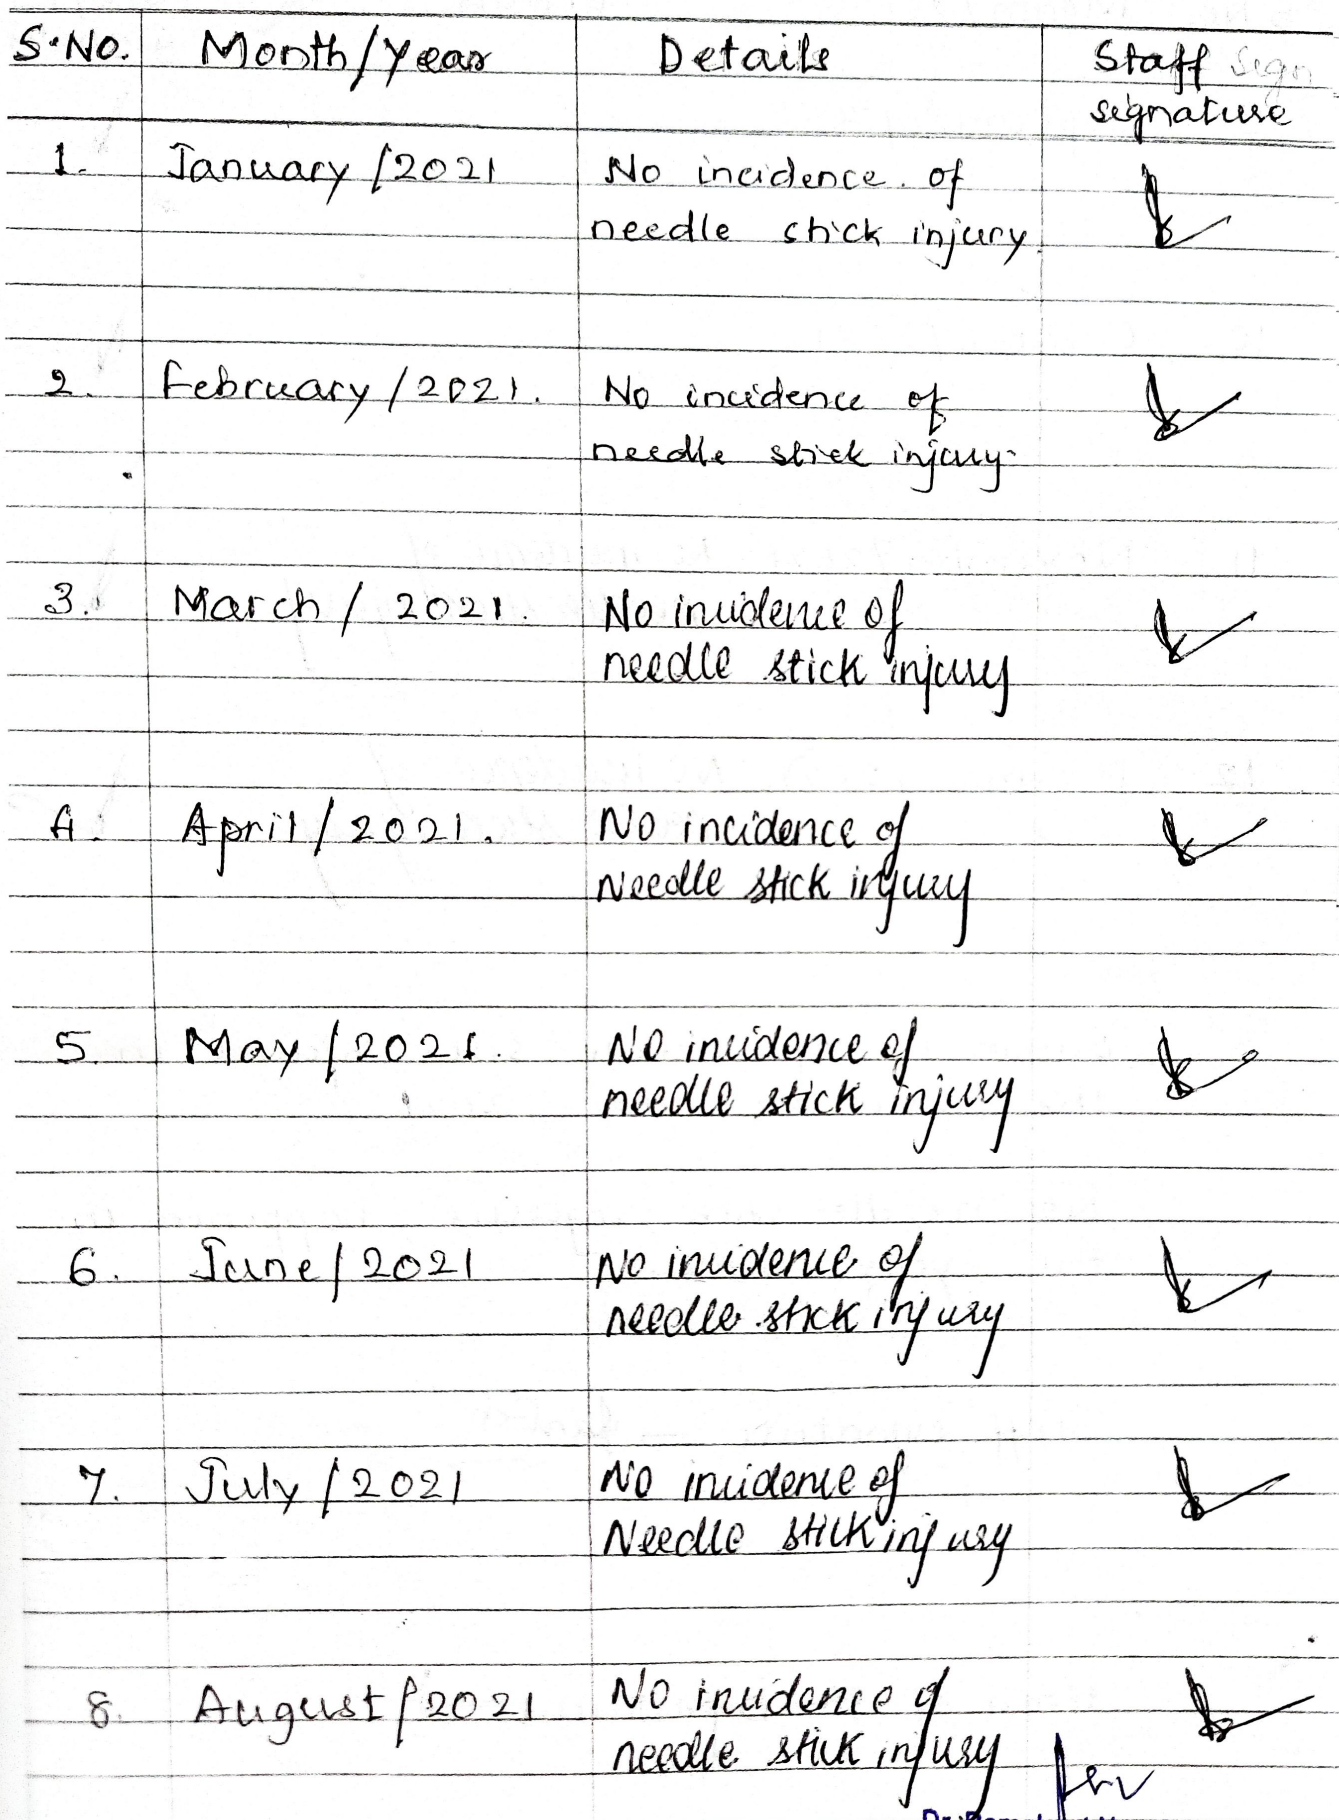 S.No. Month/Year Details Staff
signature
1. January/2021 No incidence of
needle stick injury
2. February/2021. No incidence of
needle stick injury.
3. March/2021. No incidence of
needle stick injury
4. April/2021. No incidence of
Needle stick injury
5. May/2021. No incidence of
needle stick injury
6. June/2021 No incidence of
needle stick injury
7. July/2021 No incidence of
Needle stick injury
8. August/2021 No incidence of
needle stick injury